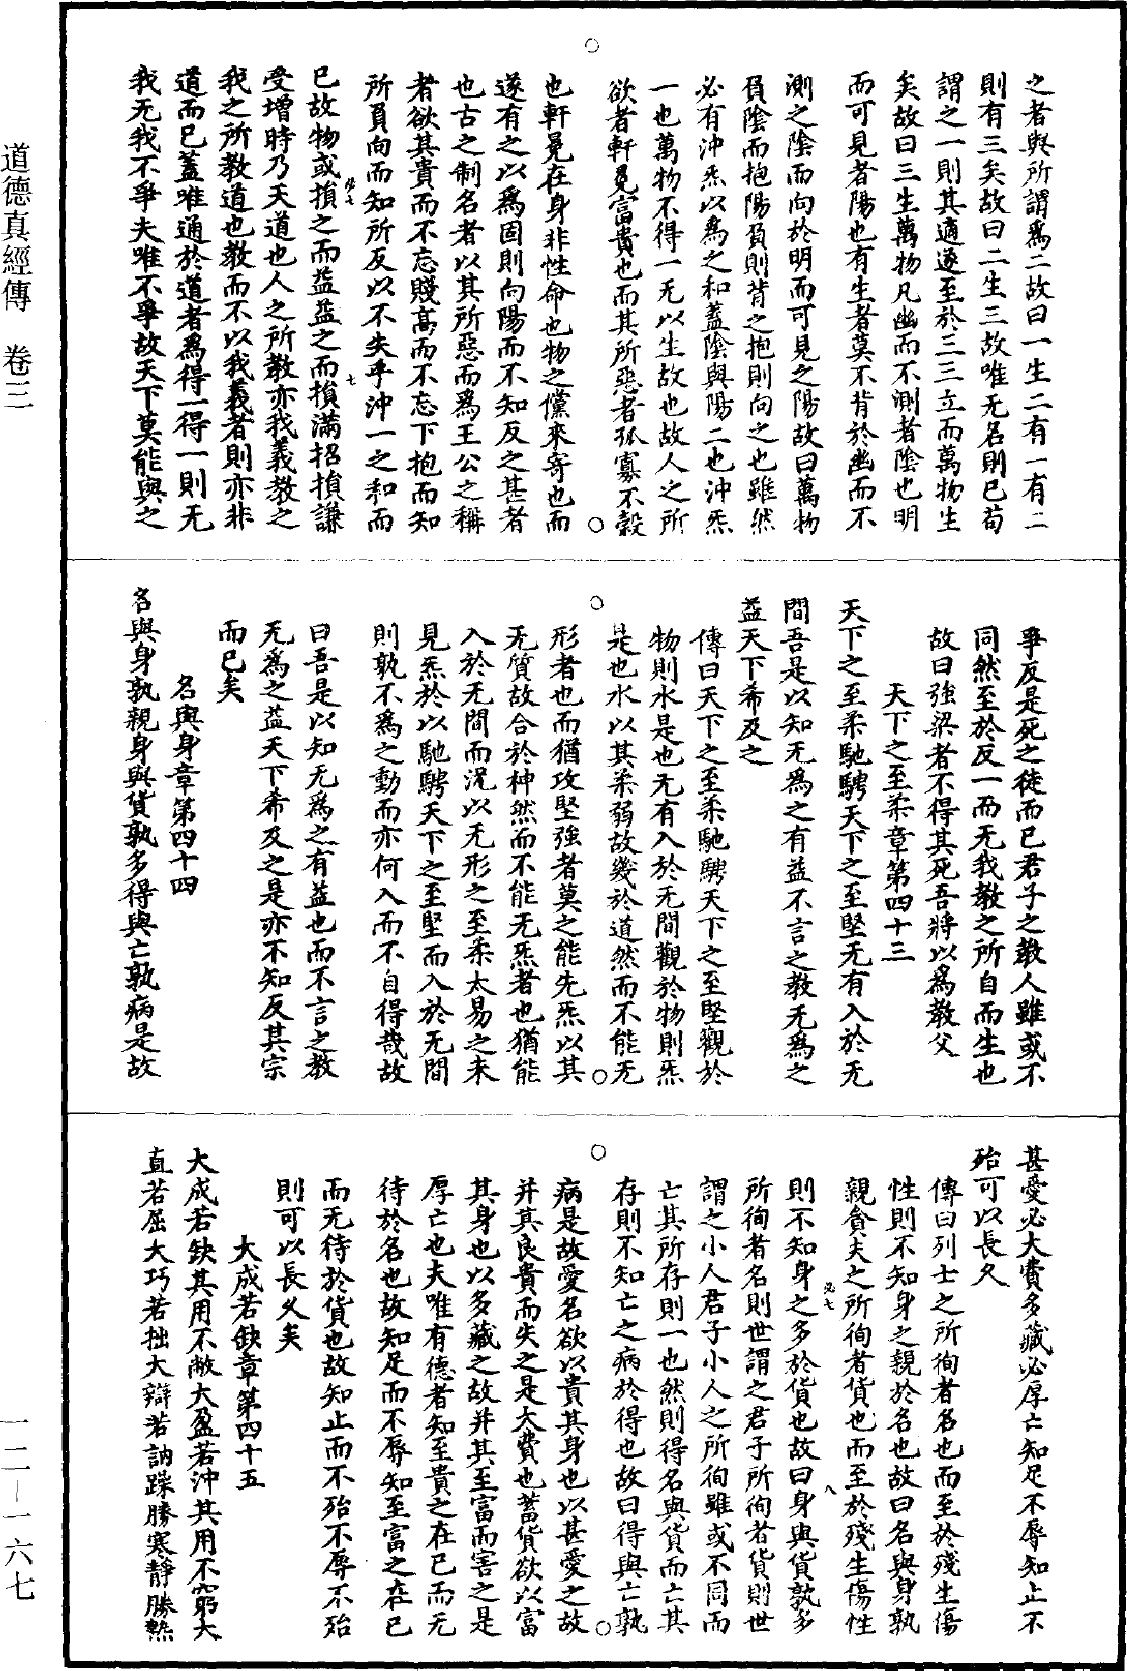 道德真經傳　卷三
之者與所謂爲二故曰一生二有一有二
則有三矣故曰二生三故唯无名則已苟
謂之一則其適遂至於三三立而萬物生
矣故曰三生萬物凡幽而不測者陰也明
而可見者陽也有生者莫不背於幽而不
測之陰而向於明而可見之陽故曰萬物
負陰而抱陽負則背之抱則向之也雖然
必有沖炁以爲之和蓋陰與陽二也沖炁
一也萬物不得一无以生故也故人之所
欲者軒冕富貴也而其所惡者孤寡不穀
也軒冕在身非性命也物之儻來寄也而
遂有之以爲固則向陽而不知反之甚者
也古之制名者以其所惡而爲王公之稱
者欲其貴而不忘賤高而不忘下抱而知
所負向而知所反以不失乎沖一之和而
已故物或損之而益益之而損滿招損謙
受增時乃天道也人之所教亦我義教之
我之所教道也教而不以我義者則亦非
道而已蓋唯通於道者爲得一得一則无
我无我不爭夫唯不爭故天下莫能與之
爭反是死之徒而已君子之教人雖或不
同然至於反一而无我教之所自而生也
故曰強梁者不得其死吾將以爲教父
天下之至柔章第四十三
天下之至柔馳騁天下之至堅无有入於无
間吾是以知无爲之有益不言之教无爲之
益天下希及之
傳曰天下之至柔馳騁天下之至堅觀於
物則水是也无有入於无間觀於物則炁
是也水以其柔弱故幾於道然而不能无
形者也而猶攻堅強者莫之能先炁以其
无質故合於神然而不能无炁者也猶能
入於无間而況以无形之至柔太易之未
見炁於以馳騁天下之至堅而入於无間
則孰不爲之動而亦何入而不自得哉故
曰吾是以知无爲之有益也而不言之教
无爲之益天下希及之是亦不知反其宗
而已矣
名與身章第四十四
名與身孰親身與貨孰多得與亡孰病是故
甚愛必大費多藏必厚亡知足不辱知止不
殆可以長久
傳曰列士之所徇者名也而至於殘生傷
性則不知身之親於名也故曰名與身孰
親貪夫之所徇者貨也而至於殘生傷性
則不知身之多於貨也故曰身與貨孰多
所徇者名則世謂之君子所徇者貨則世
謂之小人君子小人之所徇雖或不同而
亡其所存則一也然則得名與貨而亡其
存則不知亡之病於得也故曰得與亡孰
病是故愛名欲以貴其身也以甚愛之故
并其良貴而失之是大費也蓄貨欲以富
其身也以多藏之故并其至富而害之是
厚亡也夫唯有德者知至貴之在已而无
待於名也故知足而不辱知至富之在已
而无待於貨也故知止而不殆不辱不殆
則可以長久矣
大成若缺章第四十五
大成若缺其用不敝大盈若沖其用不窮大
直若屈大巧若拙大辯若訥躁勝寒靜勝熱
一二－一六七